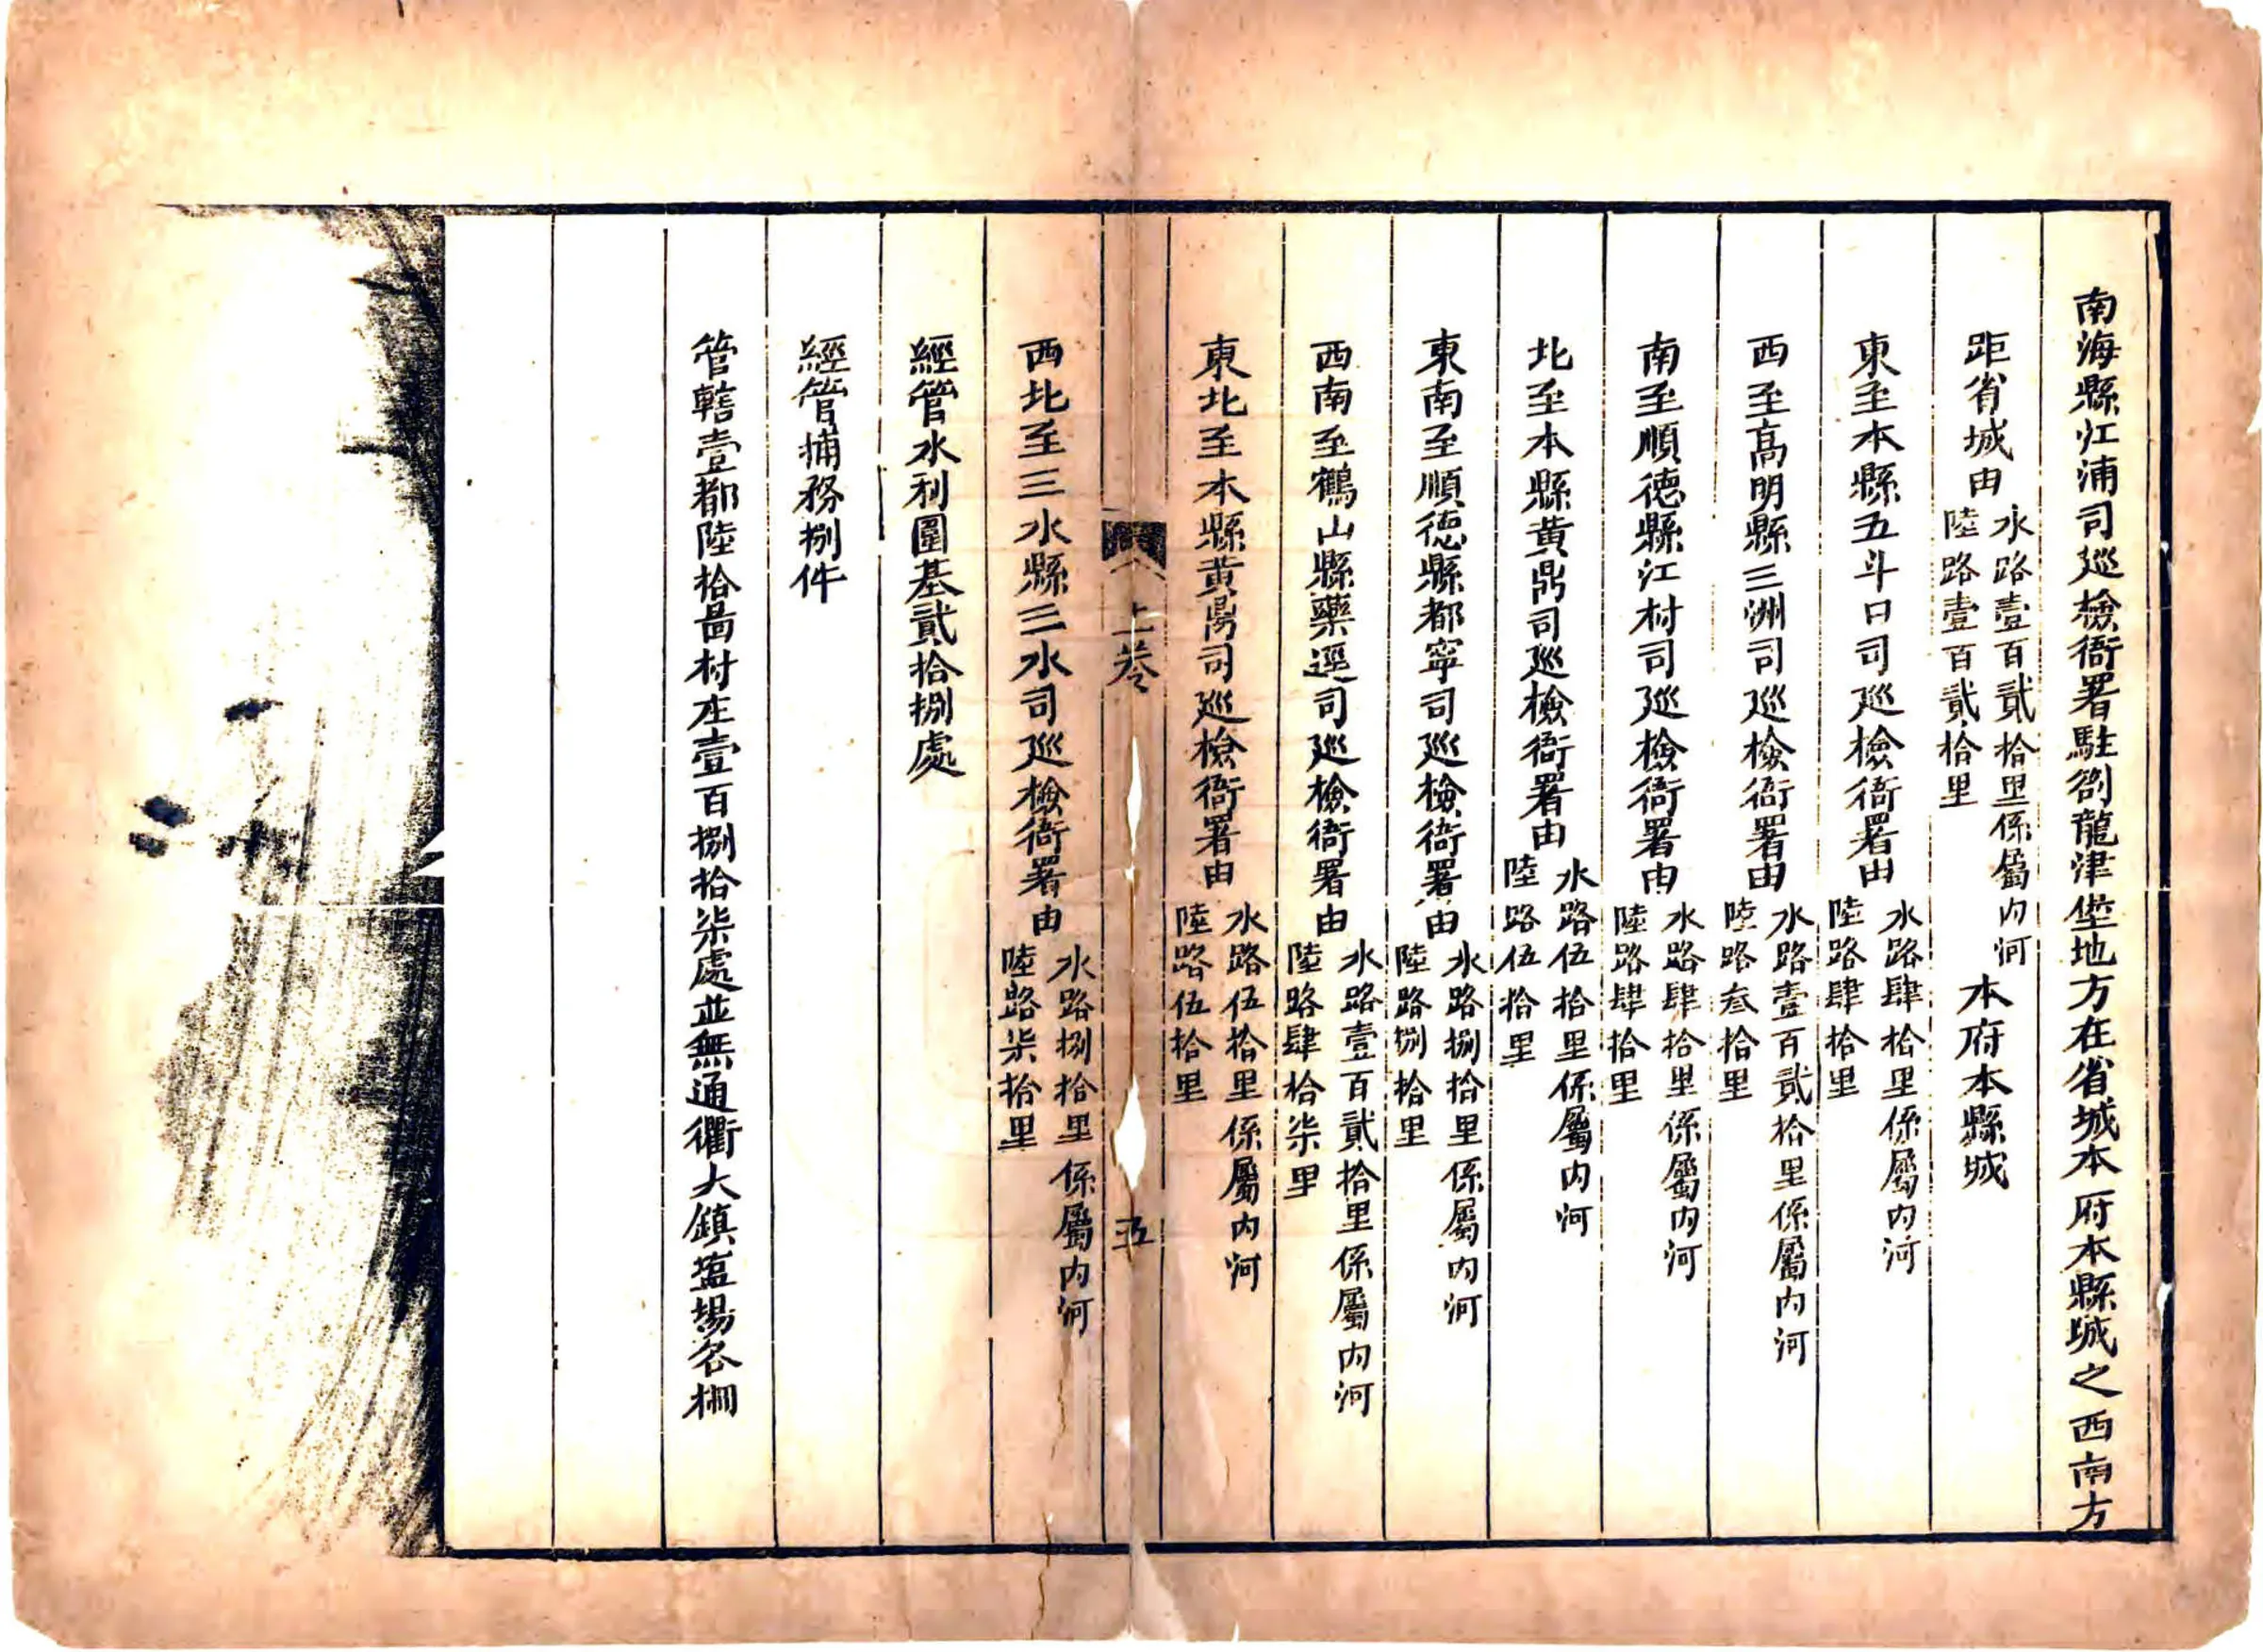 南海縣江浦司廵檢衙署駐劄龍津堡地方在省城本府本縣城之西南方
距省城由水路壹百貳拾里係屬內河陸路壹百貳拾里本府本縣城
東至本縣五斗口司廵檢衙署由水路肆拾里係屬內河陸路肆拾里
西至高明縣三洲司廵檢衙署由水路壹百貳拾里係屬內河陸路叁拾里
南至順德縣江村司廵檢衙署由水路肆拾里係屬內河陸路肆拾里
北至本縣黃鼎司廵檢衙署由水路伍拾里係屬內河陸路伍拾里
東南至順德縣都寧司廵檢衙署由水路捌拾里係屬內河陸路捌拾里
西南至鶴山縣藥逕司廵檢衙署由水路壹百貳拾里係屬內河陸路肆拾柒里
東北至本縣黃鼎司廵檢衙署由水路伍拾里係屬內河陸路伍拾里
上卷
五
西北至三水縣三水司廵檢衙署由水路捌拾里係屬內河陸路柒拾里
經管水利圍基貳拾捌處
經管捕務捌件
管轄壹都陸拾啚村庄壹百捌拾柒處並無通衢大鎮塩場各柵